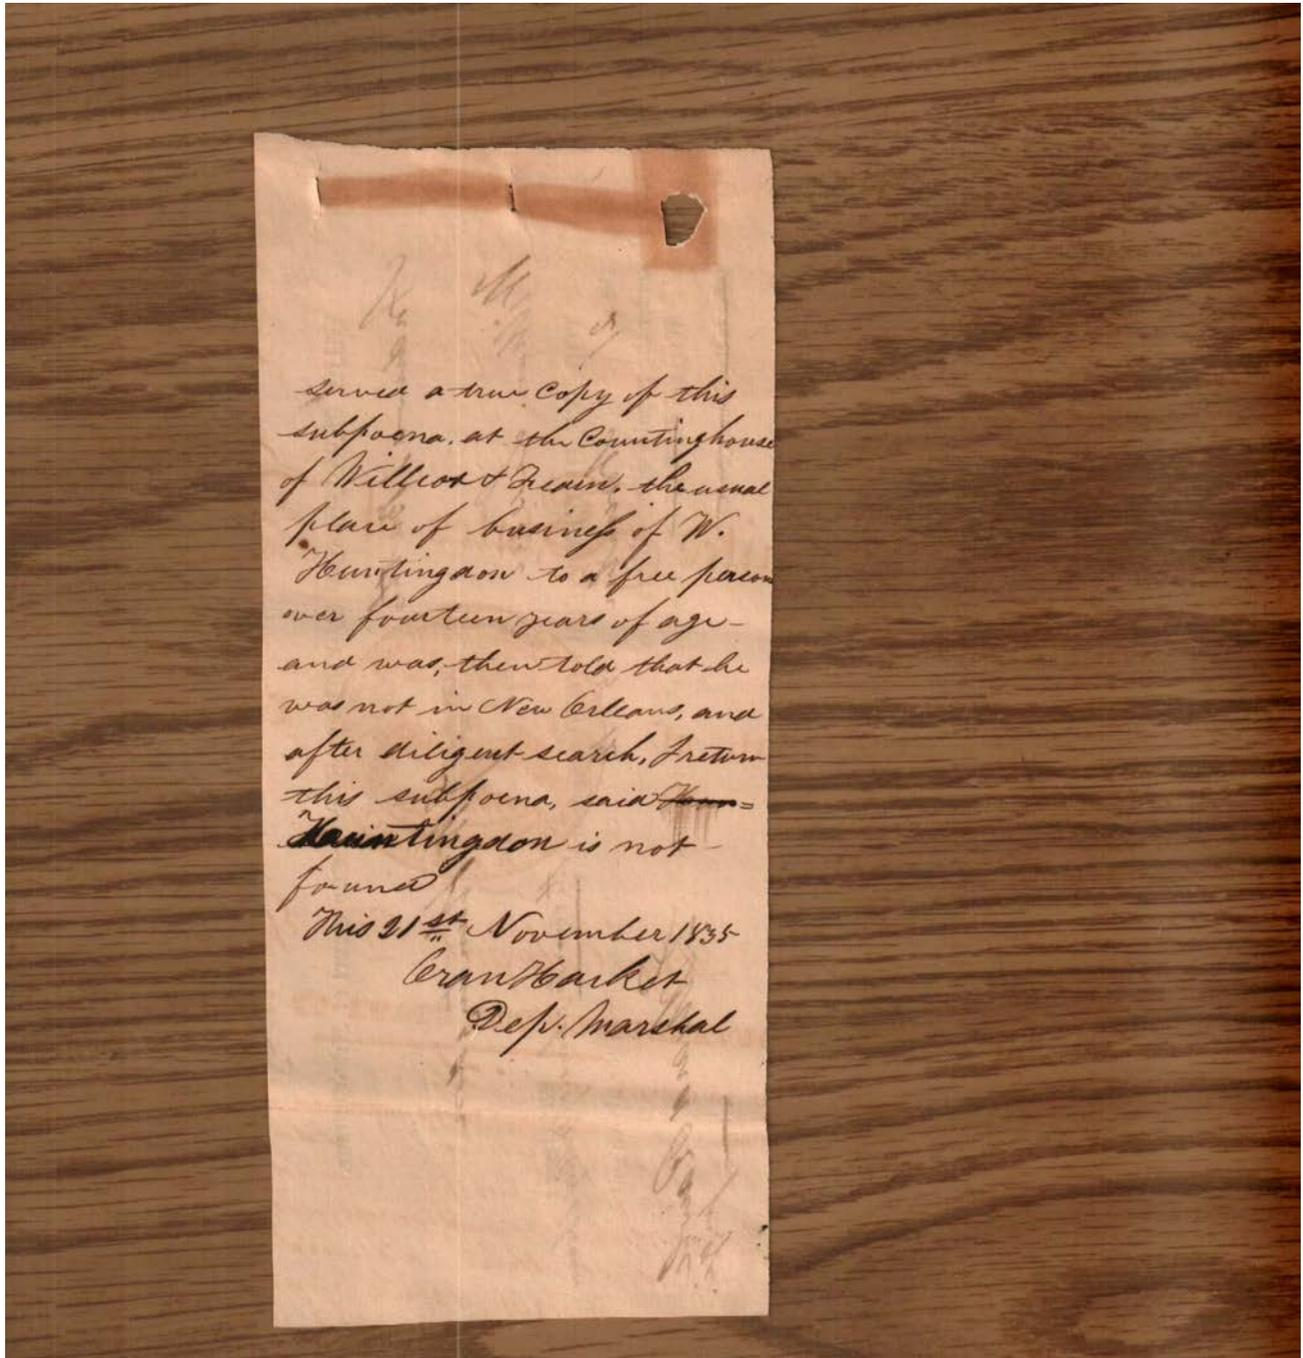 served a true Copy of this
subpoena. at the Countinghouse
of Willcox & Fearn. the usual
place of business of W.
Huntingdon to a free person
over fourteen years of age -
and was, then told that he
was not in New Orleans, and
after diligent search, I return
this subpoena, said Hun=
Huntingdon is not
found
This 21st November 1835
Harket
Dep. Marshal